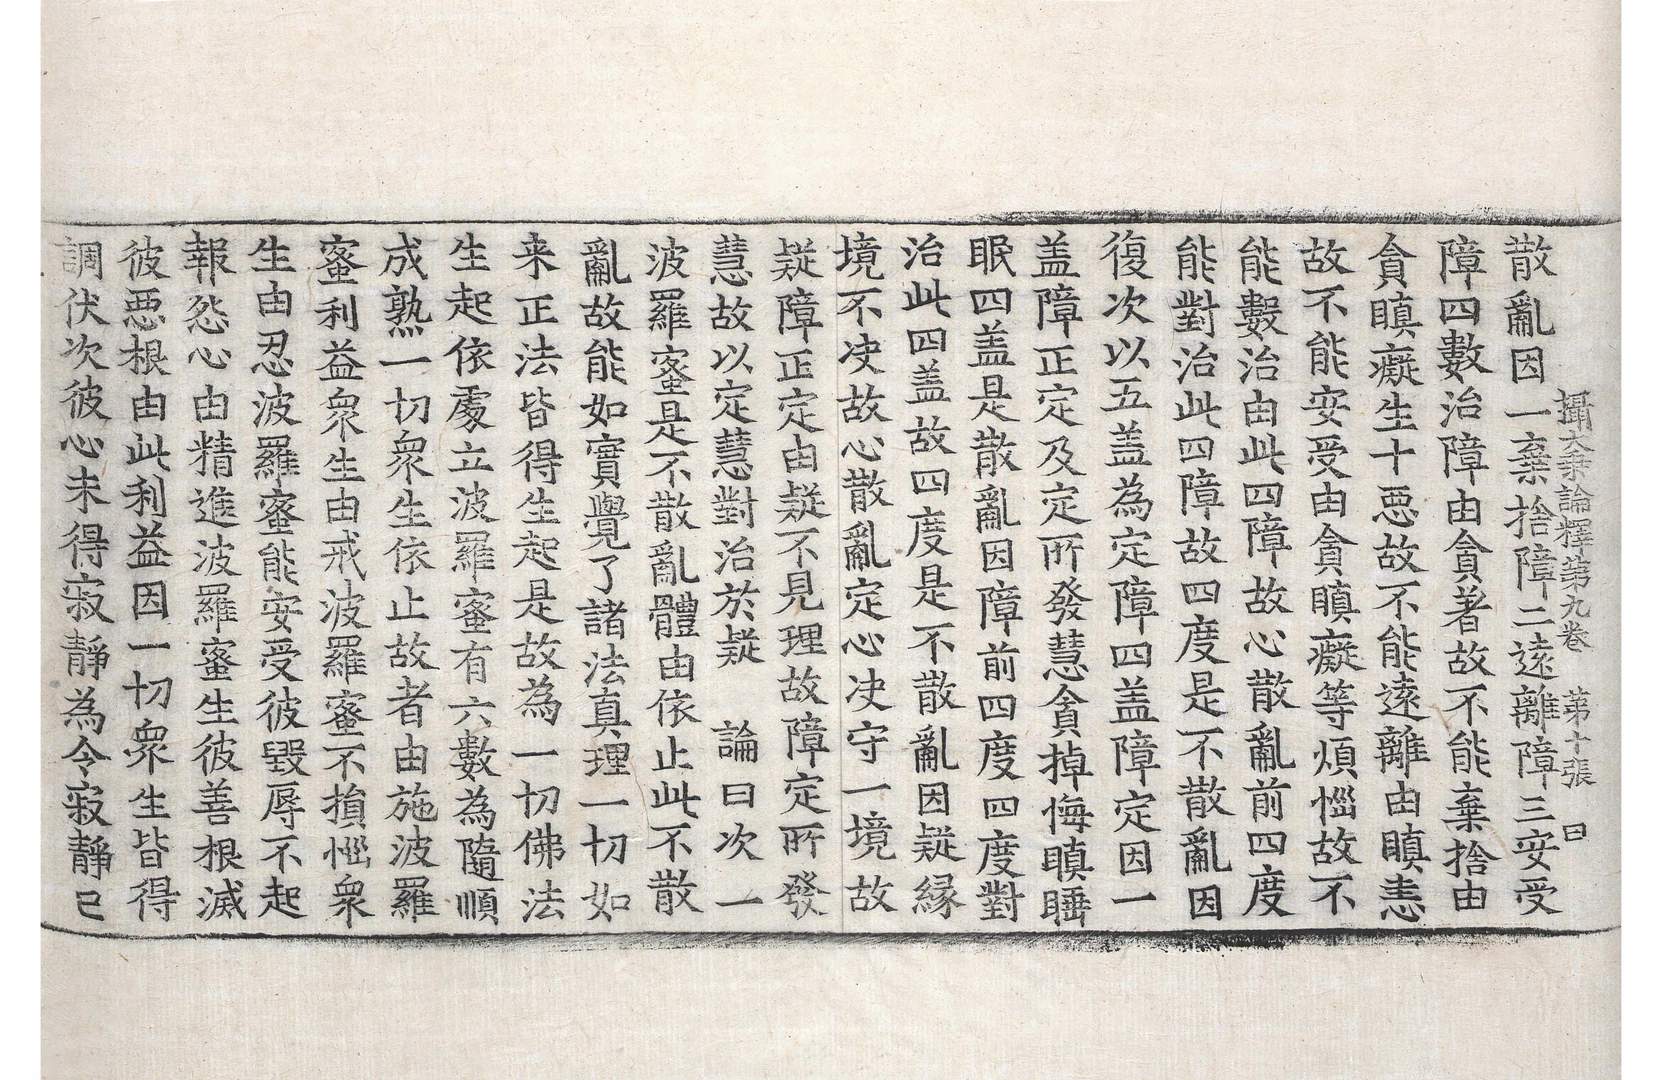 攝大乘論釋第九卷 第十張 日
散亂因一棄捨障二遠離障三安受
障四數治障由貪著故不能棄捨由
貪瞋癡生十惡故不能遠離由瞋恚
故不能安受由貪瞋癡等煩惱故不
能數治由此四障故心散亂前四度
能對治此四障故四度是不散亂因
復次以五盖為定障四盖障定因一
盖障正定及定所發慧貪掉悔瞋睡
眠四盖是散亂因障前四度四度對
治此四盖故四度是不散亂因疑縁
境不决故心散亂定心决守一境故
疑障正定由疑不見理故障定所發
慧故以定慧對治於疑 論曰次一
波羅蜜是不散亂體由依止此不散
亂故能如實覺了諸法真理一切如
来正法皆得生起是故為一切佛法
生起依處立波羅蜜有六數為隨順
成熟一切衆生依止故者由施波羅
蜜利益衆生由戒波羅蜜不損惱衆
生由忍波羅蜜能安受彼毀辱不起
報怨心由精進波羅蜜生彼善根滅
彼惡根由此利益因一切衆生皆得
調伏次彼心未得寂靜為令寂靜已